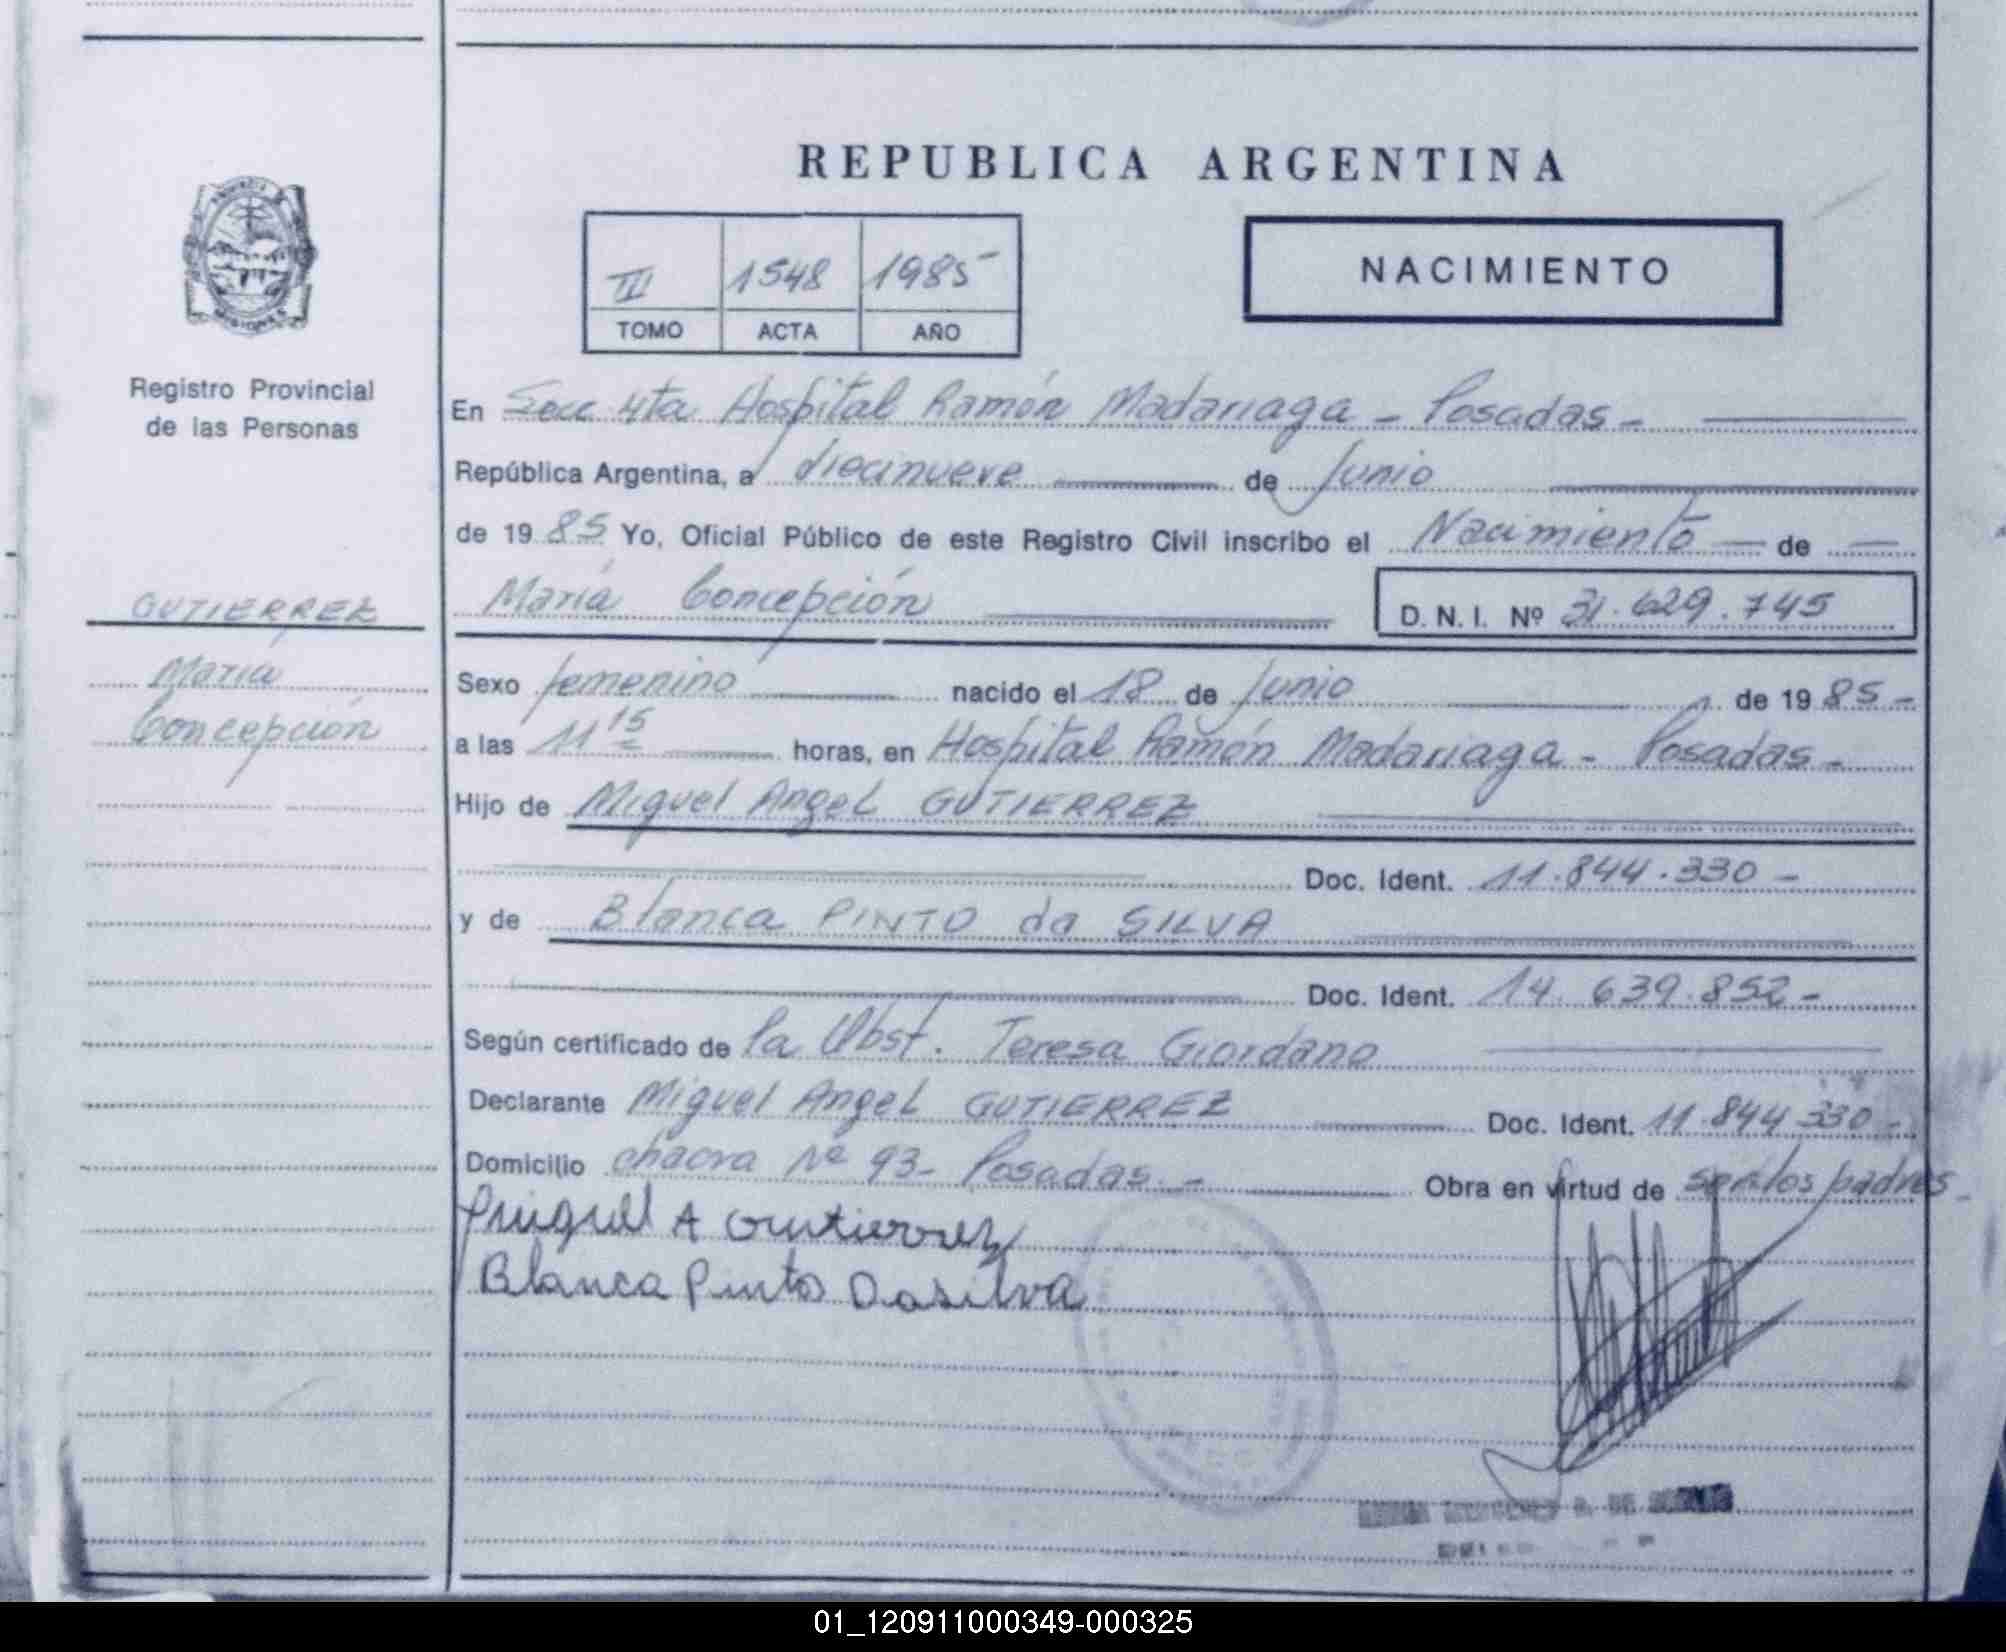 REPUBLICA ARGENTINA
III 1548 1985
TOMO ACTA AÑO
NACIMIENTO
MISIONES
Registro Provincial
de las Personas
GUTIERREZ
María
Concepción
En Secc 4ta Hospital Ramón Madariaga - Posadas -
República Argentina, a diecinueve de Junio
de 19 85 Yo, Oficial Público de este Registro Civil inscribo el Nacimiento de
María Concepción D. N. I. Nº 31.629.745
Sexo femenino nacido el 18 de Junio de 19 85 -
a las 11 15 horas, en Hospital Ramón Madariaga - Posadas -
Hijo de Miguel Angel GUTIERREZ
Doc. Ident. 11.844.330 -
y de Blanca PINTO da SILVA
Doc. Ident. 14.639.852 -
Según certificado de la Obst. Teresa Giordano
Declarante Miguel Angel GUTIERREZ Doc. Ident. 11.844.330 -
Domicilio chacra Nº 93 - Posadas - Obra en virtud de ser los padres -
Miguel A Gutierrez
Blanca Pinto Dasilva
01_120911000349-000325